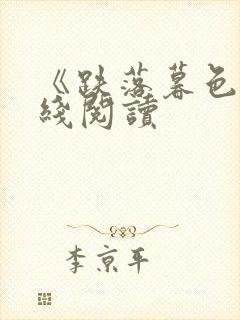 《跌落暮色
綫閱讀
李京平